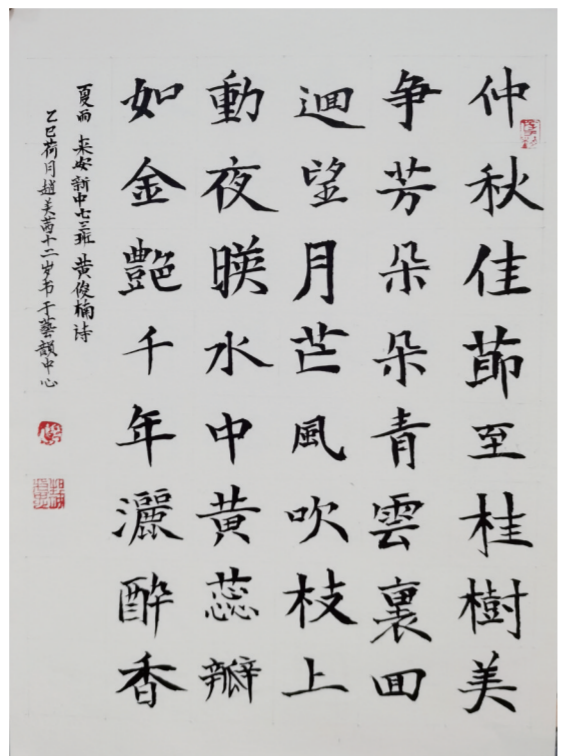 仲秋佳節至桂樹美
争芳朵朵青雲裏回
迴望月芒風吹枝上
動夜暎水中黄蕊瓣
如金艷千年灑醉香
夏雨 来安新中七三班 黄俊楠诗
乙巳荷月趙美茜十二岁书于藝韻中心